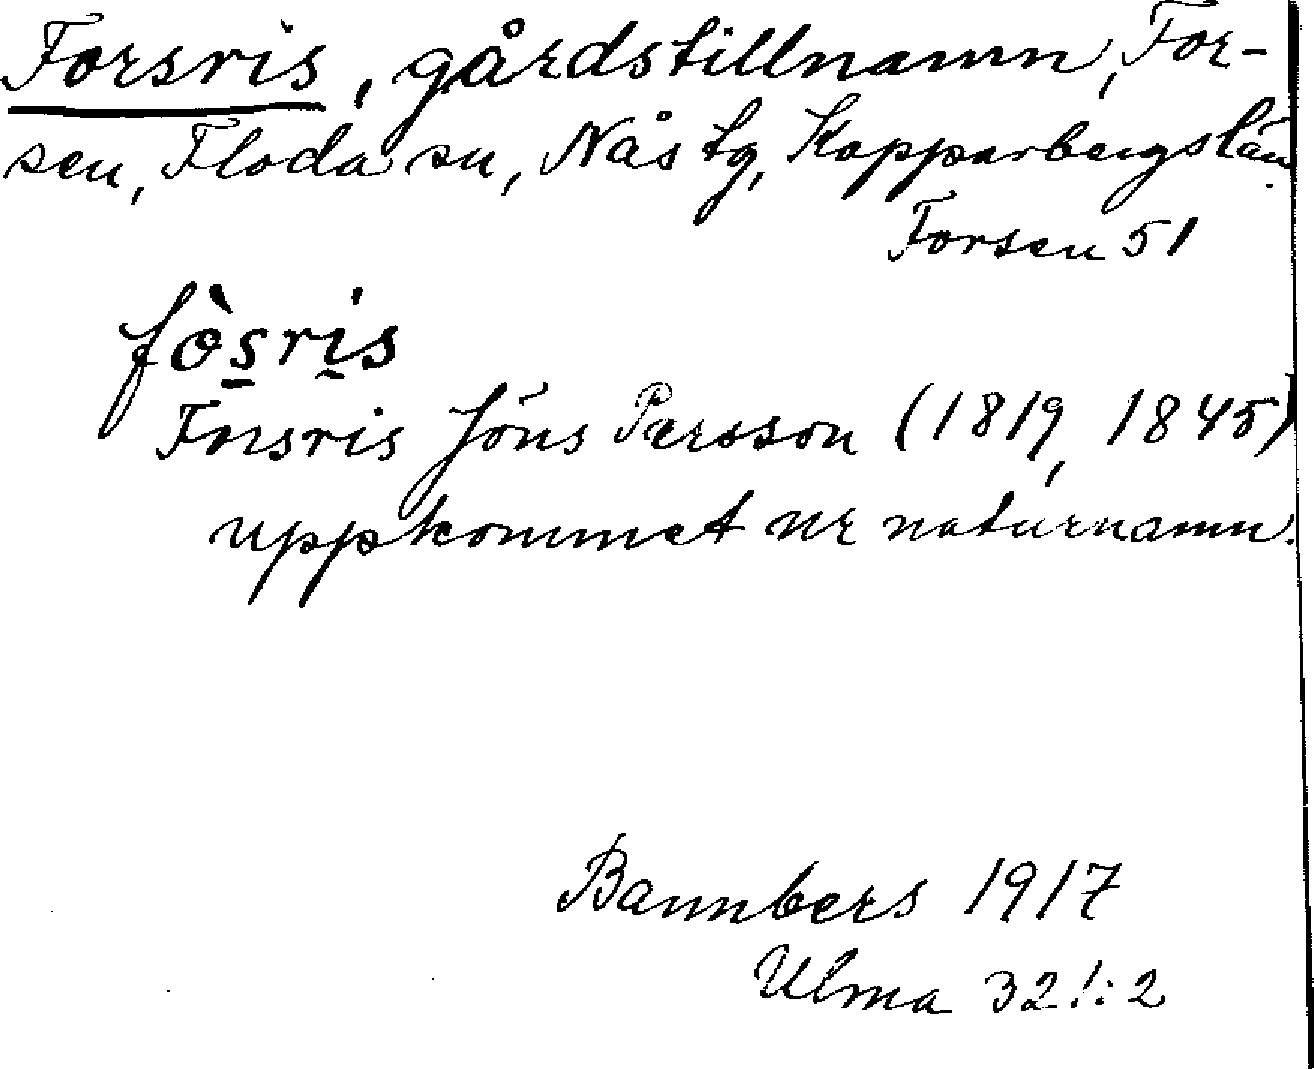 Forsris, gårdstillnamn, For-
sen, Floda sn, Nås tg, Kopparbergs län.
Forsen 51
fòs̠ri̠s
Forsris Jöns Persson (1819, 1845)
uppkommet ur naturnamn.
Bannbers 1917
Ulma 321:2